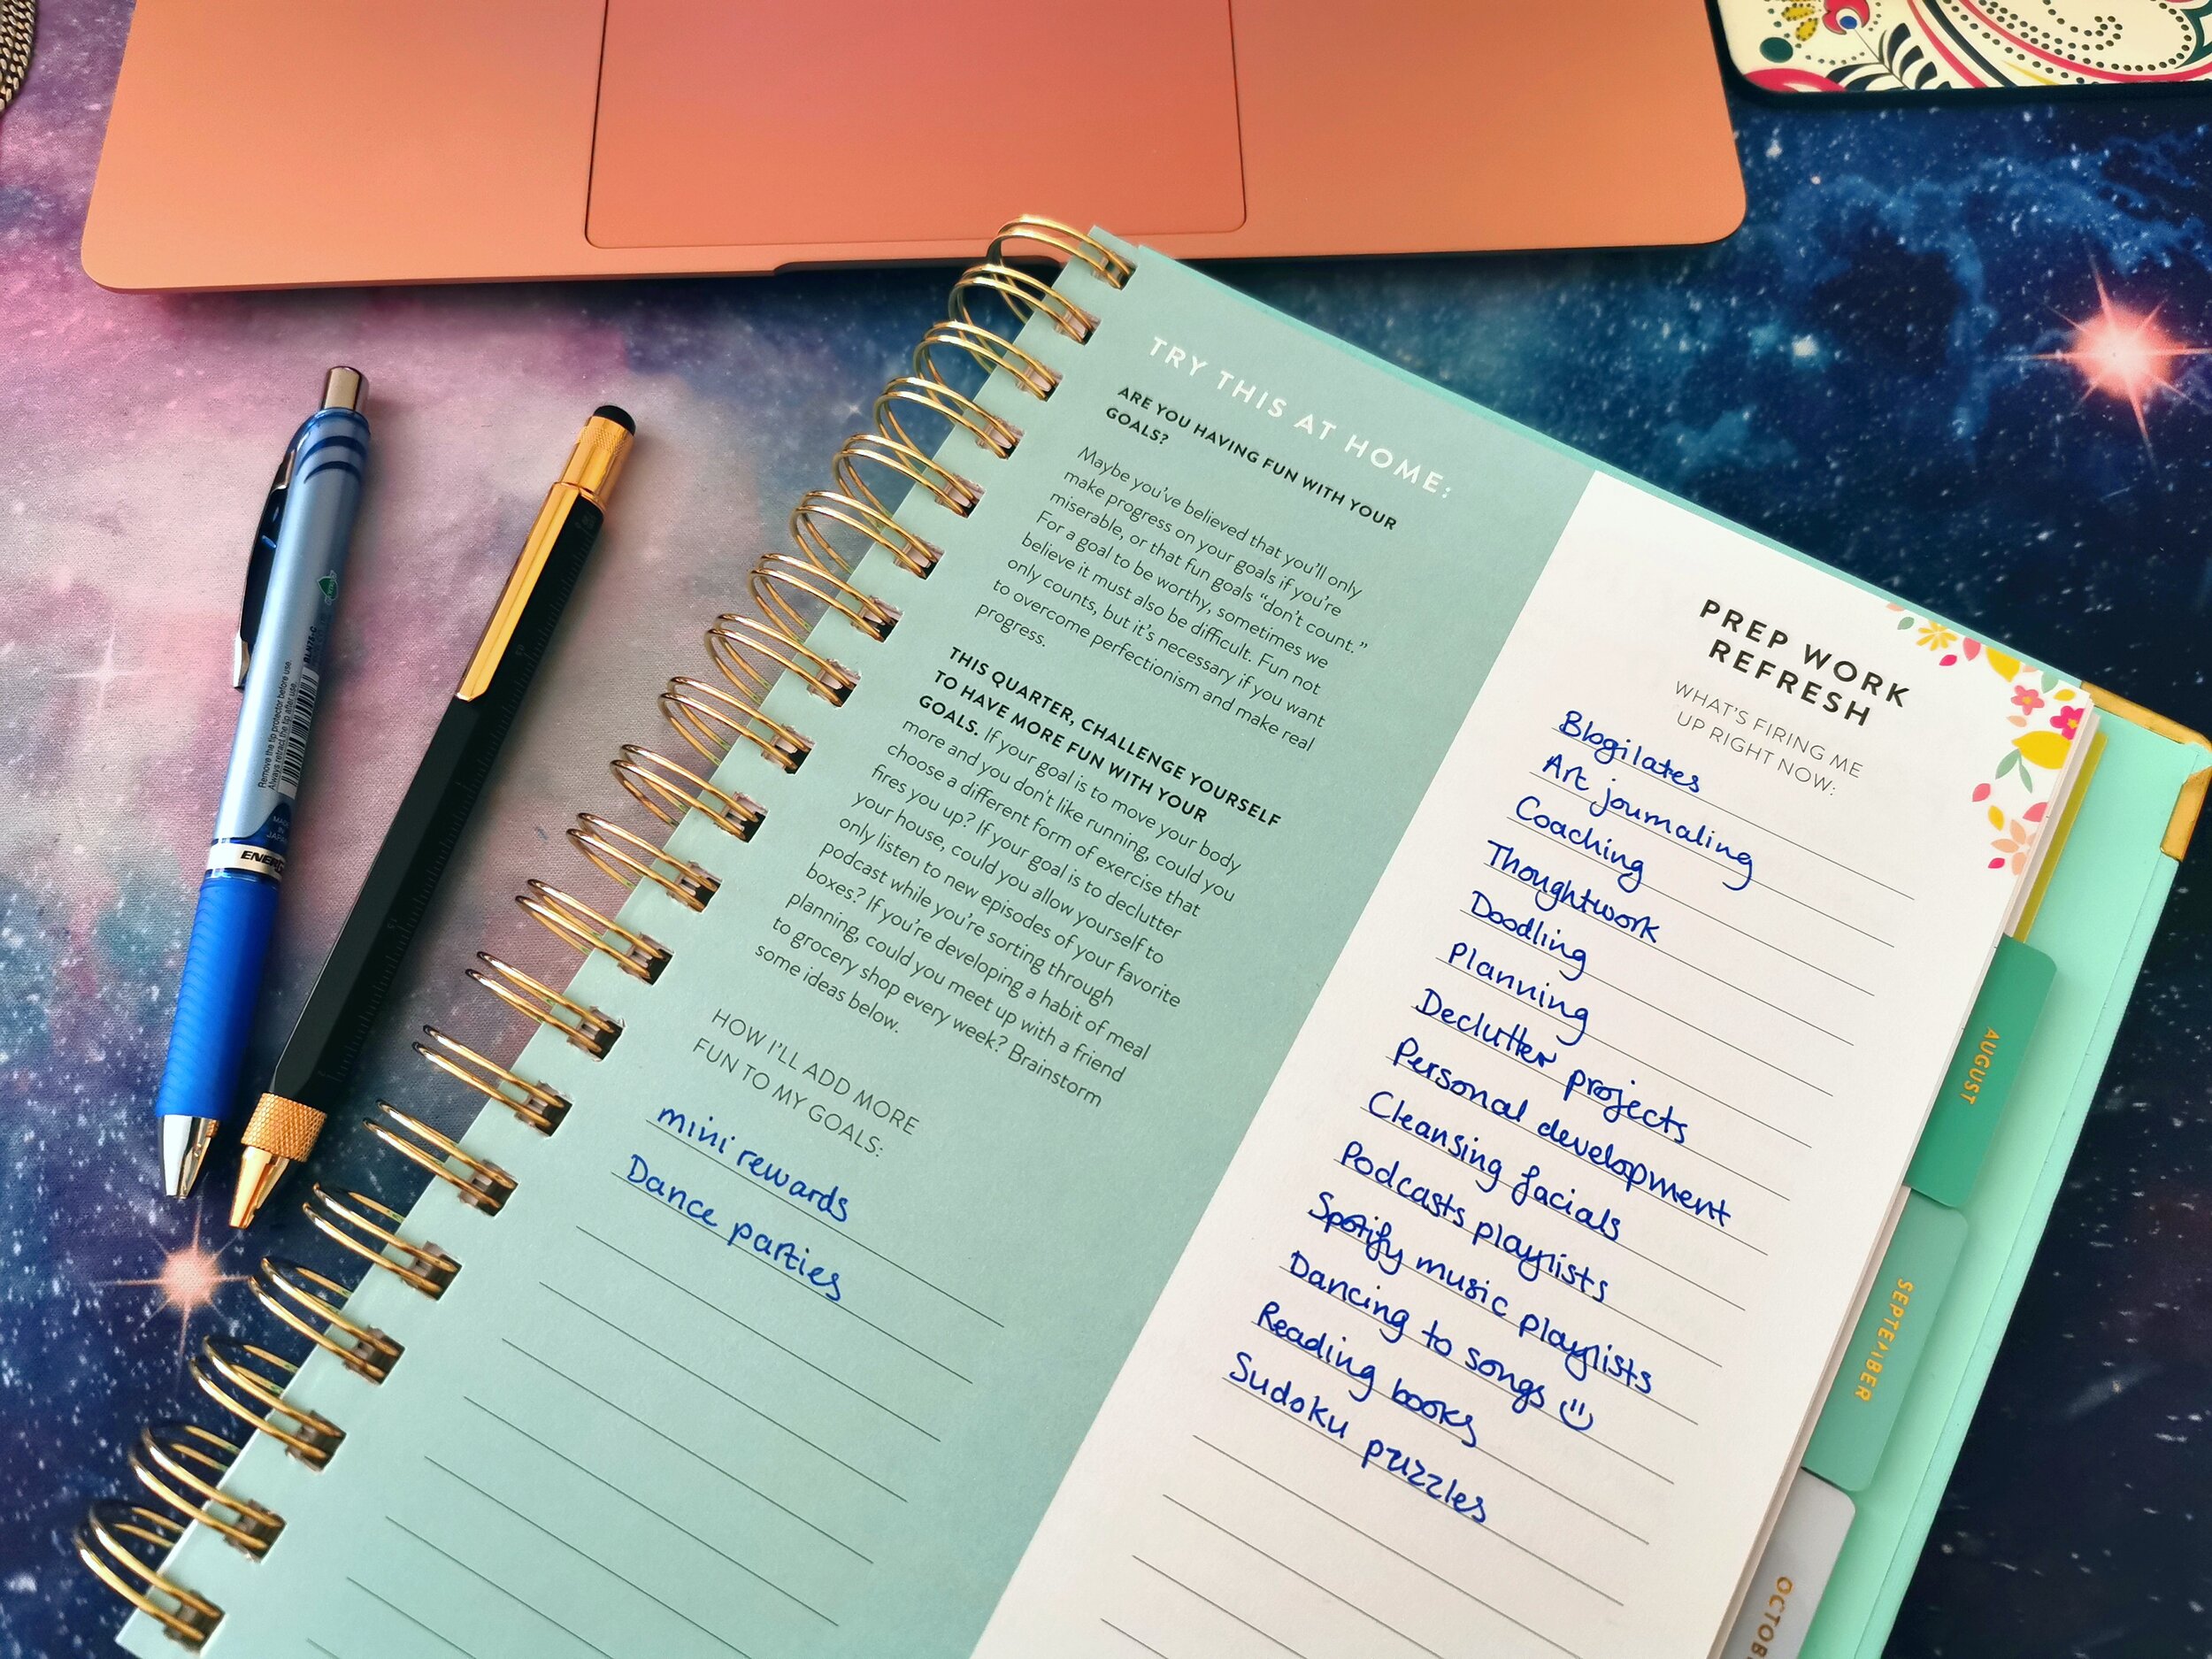 TRY THIS AT HOME:
ARE YOU HAVING FUN WITH YOUR
GOALS?
Maybe you've believed that you'll only
make progress on your goals if you're
miserable, or that fun goals “don't count.”
For a goal to be worthy, sometimes we
believe it must also be difficult. Fun not
only counts, but it's necessary if you want
to overcome perfectionism and make real
progress.
THIS QUARTER, CHALLENGE YOURSELF
TO HAVE MORE FUN WITH YOUR
GOALS. If your goal is to move your body
more and you don't like running, could you
choose a different form of exercise that
fires you up? If your goal is to declutter
your house, could you allow yourself to
only listen to new episodes of your favorite
podcast while you're sorting through
boxes? If you're developing a habit of meal
planning, could you meet up with a friend
to grocery shop every week? Brainstorm
some ideas below.
HOW I'LL ADD MORE
FUN TO MY GOALS:
mini rewards
Dance parties
PREP WORK
REFRESH
WHAT'S FIRING ME
UP RIGHT NOW:
Blogilates
Art journaling
Coaching
Thoughtwork
Doodling
Planning
Declutter projects
Personal development
Cleansing facials
Podcasts playlists
Spotify music playlists
Dancing to songs
Reading books
Sudoku puzzles
AUGUST
SEPTEMBER
OCTOB
Remove the tip protector before use.
Always retract the tip after use.
BLN75-C
MADE
IN
JAPAN
ENER